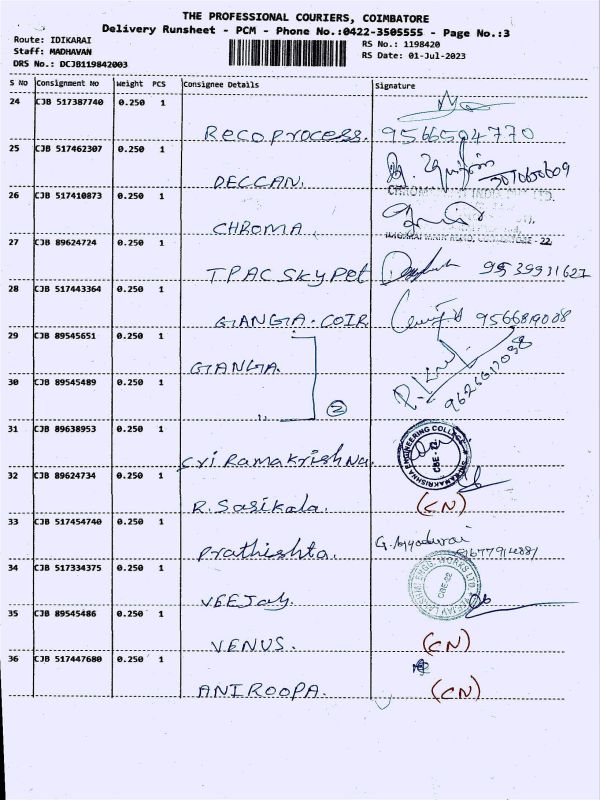 THE PROFESSIONAL COURIERS, COIMBATORE
Delivery Runsheet - PCM - Phone No.:0422-3505555 - Page No.:3
Route: IDIKARAI
RS No.: 1198420
Staff: MADHAVAN
RS Date: 01-Jul-2023
DRS No.: DCJB119842003
S No Consignment No Weight PCS Consignee Details Signature
24 CJB 517387740 0.250 1
Recoprocess. 9566504770
25 CJB 517462307 0.250 1
DECCAN.
26 CJB 517410873 0.250 1
CHROMA
27 CJB 89624724 0.250 1
TPAC SKYPet 9539931627
28 CJB 517443364 0.250 1
GANGA. COIR 9566819008
29 CJB 89545651 0.250 1
GANGA
30 CJB 89545489 0.250 1
2
31 CJB 89638953 0.250 1
Sri Ramakrishna.
ENGINEERING COLLEGE
32 CJB 89624734 0.250 1
R. Sasikala. (CN)
33 CJB 517454740 0.250 1
Prathishta.
34 CJB 517334375 0.250 1
VEEJay.
ENGG. WORKS
35 CJB 89545486 0.250 1
VENUS. (CN)
36 CJB 517447680 0.250 1
ANIROOPA. (CN)